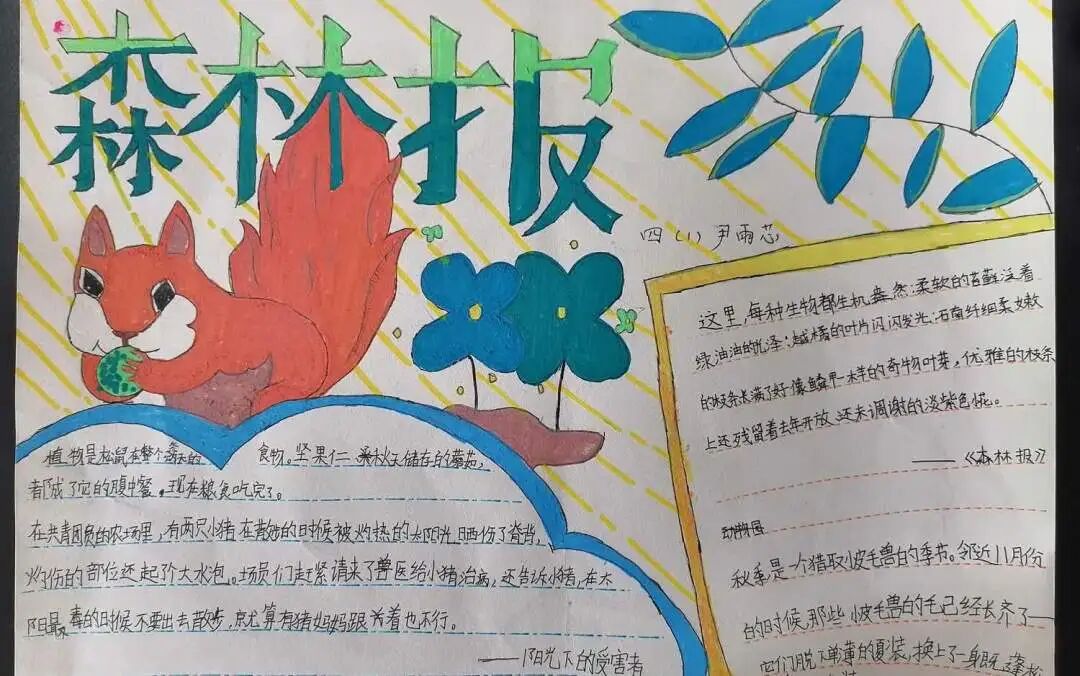 森林报
四(1)尹雨芯
植物是松鼠在整个冬天的 食物。坚果仁 秋天储存的蘑菇,
都成了它的腹中餐。现在粮食吃完了。
在共青团员的农场里,有两只小猪在散步的时候被灼热的太阳光晒伤了脊背,
灼伤的部位还起了大水泡。场员们赶紧请来了兽医给小猪治病,还告诉小猪,在太
阳最毒的时候不要出去散步,就算有猪妈妈跟着也不行。
——阳光下的受害者
这里,每种生物都生机盎然:柔软的苔藓泛着
绿油油的光泽;越橘的叶片闪闪发光;石南纤细柔嫩
的枝条长满了好像鳞甲一样的奇物叶芽,优雅的枝条
上还残留着去年开放、还未凋谢的淡紫色花。
——《森林报》
动物园
秋季是一个猎取小皮毛兽的季节。邻近11月份
的时候,那些小皮毛兽的毛已经长齐了——
它们脱下单薄的夏装,换上了一身既蓬松